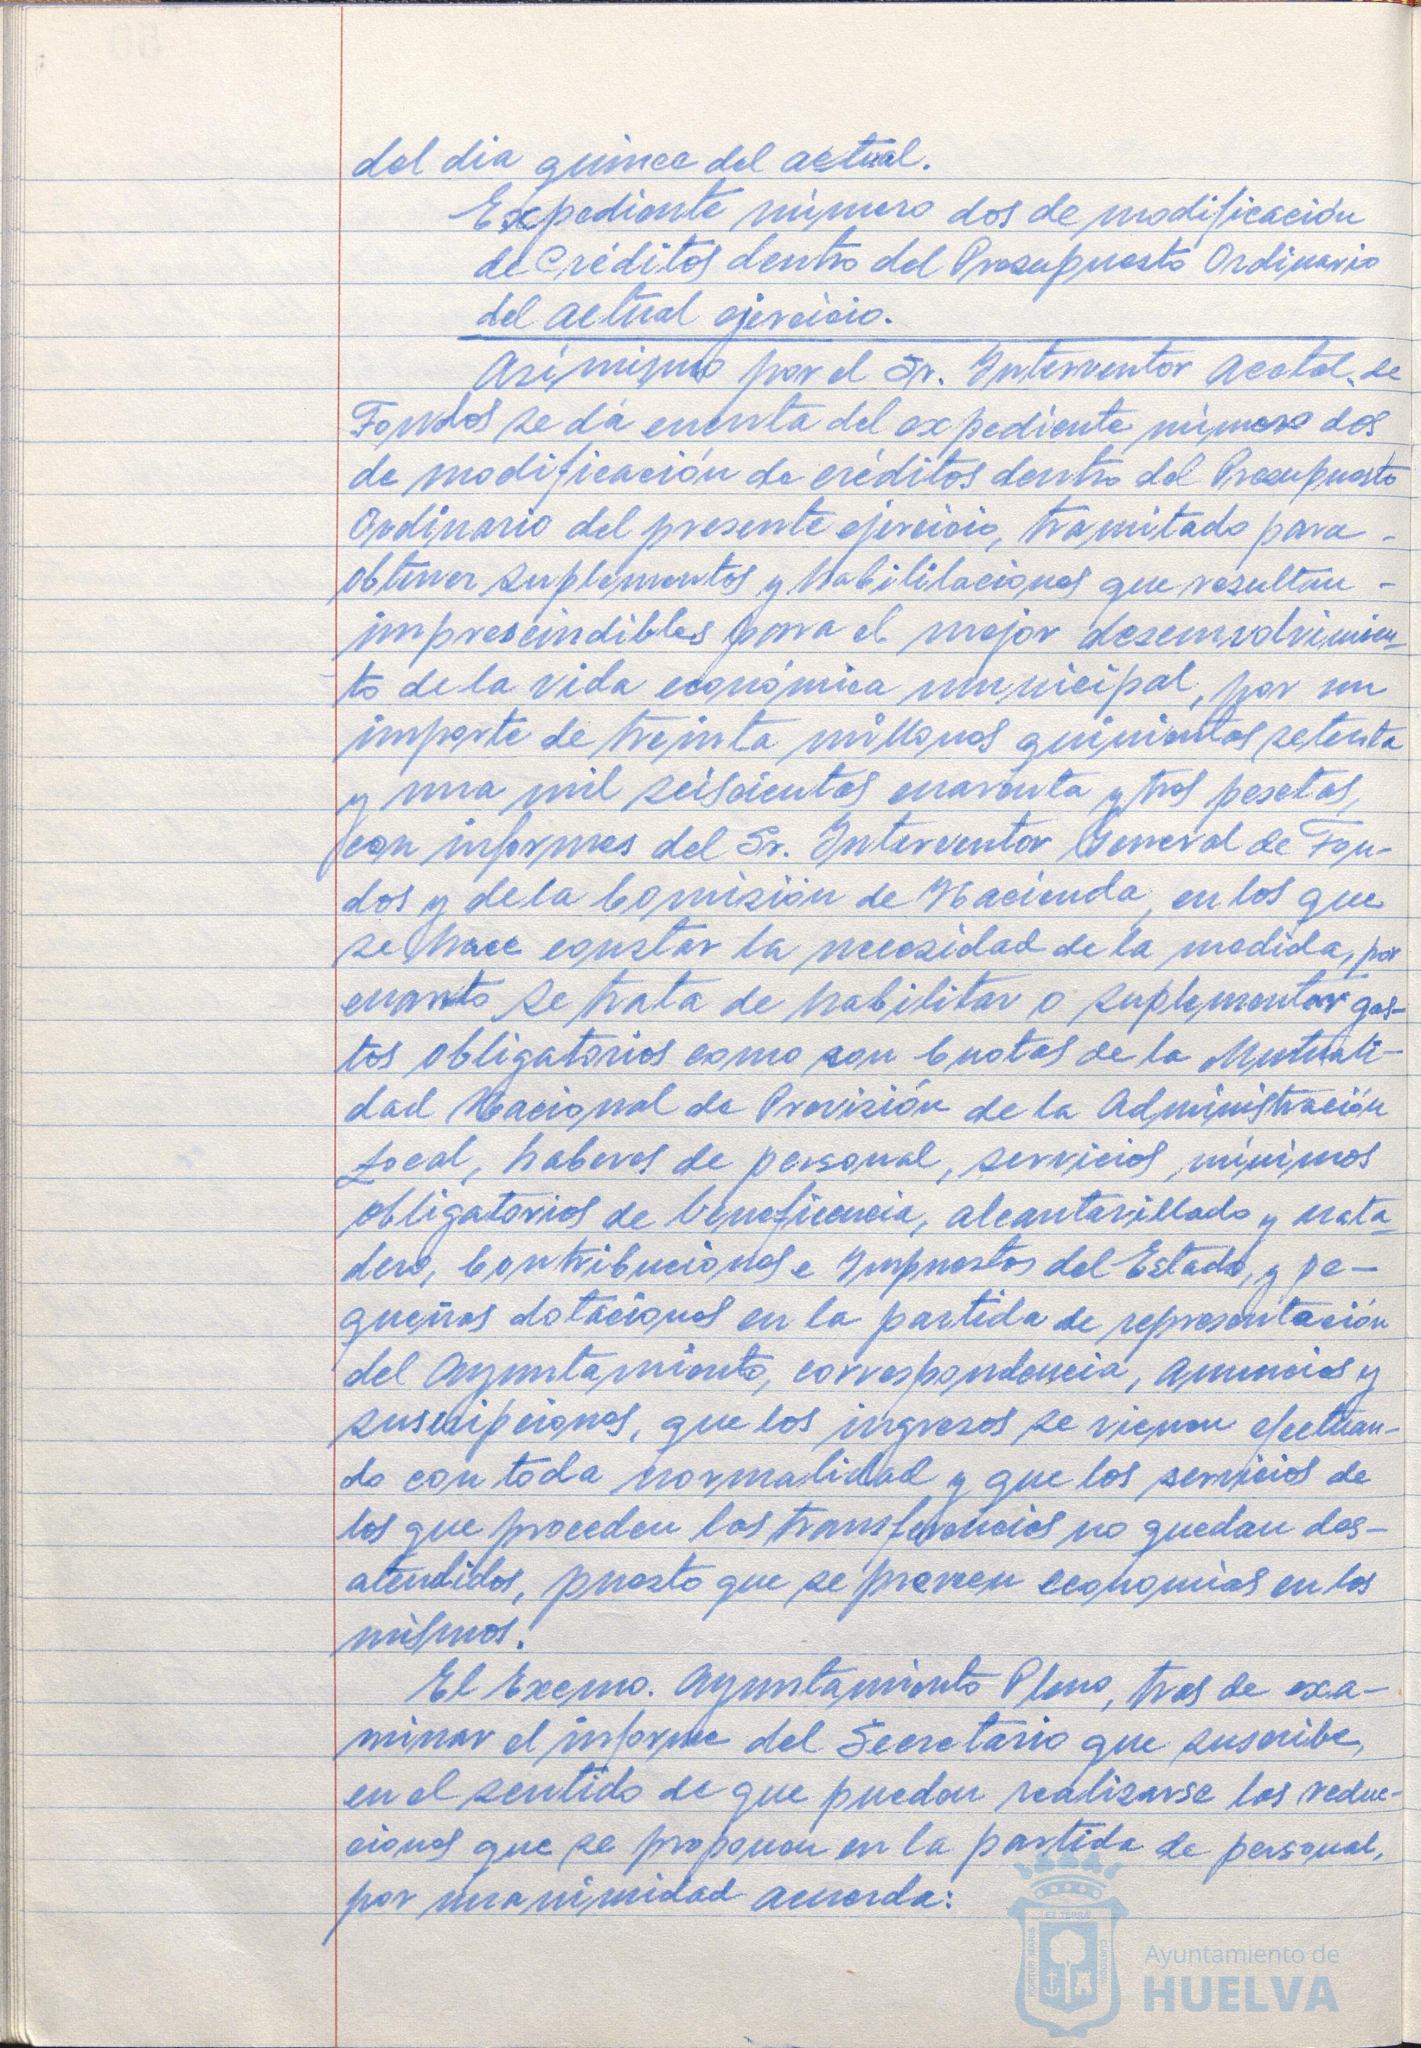 del dia quince del actual.
Expediente número dos de modificación
de Créditos dentro del Presupuesto Ordinario
del actual ejercicio.
Asímismo por el Sr. Interventor Acctal. de
Fondos se dá cuenta del expediente número dos
de modificación de créditos dentro del Presupuesto
Ordinario del presente ejercicio, tramitado para -
obtener suplementos y habilitaciones que resultan -
imprescindibles para el mejor desenvolvimien-
to de la vida económica municipal, por un
importe de treinta millones quinientas setenta
y una mil seiscientas cuarenta y tres pesetas,
con informes del Sr. Interventor General de Fon-
dos y de la Comisión de Hacienda, en los que
se hace constar la necesidad de la medida, por
cuanto se trata de habilitar o suplementar gas-
tos obligatorios como son Cuotas de la Mutuali-
dad Nacional de Previsión de la Administración
Local, haberes de personal, servicios mínimos
obligatorios de beneficencia, alcantarillado y mata-
dero, Contribuciones e Impuestos del Estado, y pe-
queñas dotaciones en la partida de representación
del Ayuntamiento, correspondencia, anuncios y
suscripciones, que los ingresos se vienen efectuan-
do con toda normalidad y que los servicios de
los que proceden las transferencias no quedan des-
atendidos, puesto que se preveen economías en los
mismos.
El Excmo. Ayuntamiento Pleno, tras de exa-
minar el informe del Secretario que suscribe,
en el sentido de que pueden realizarse las reduc-
ciones que se proponen en la partida de personal,
por unanimidad acuerda:
Ayuntamiento de
HUELVA